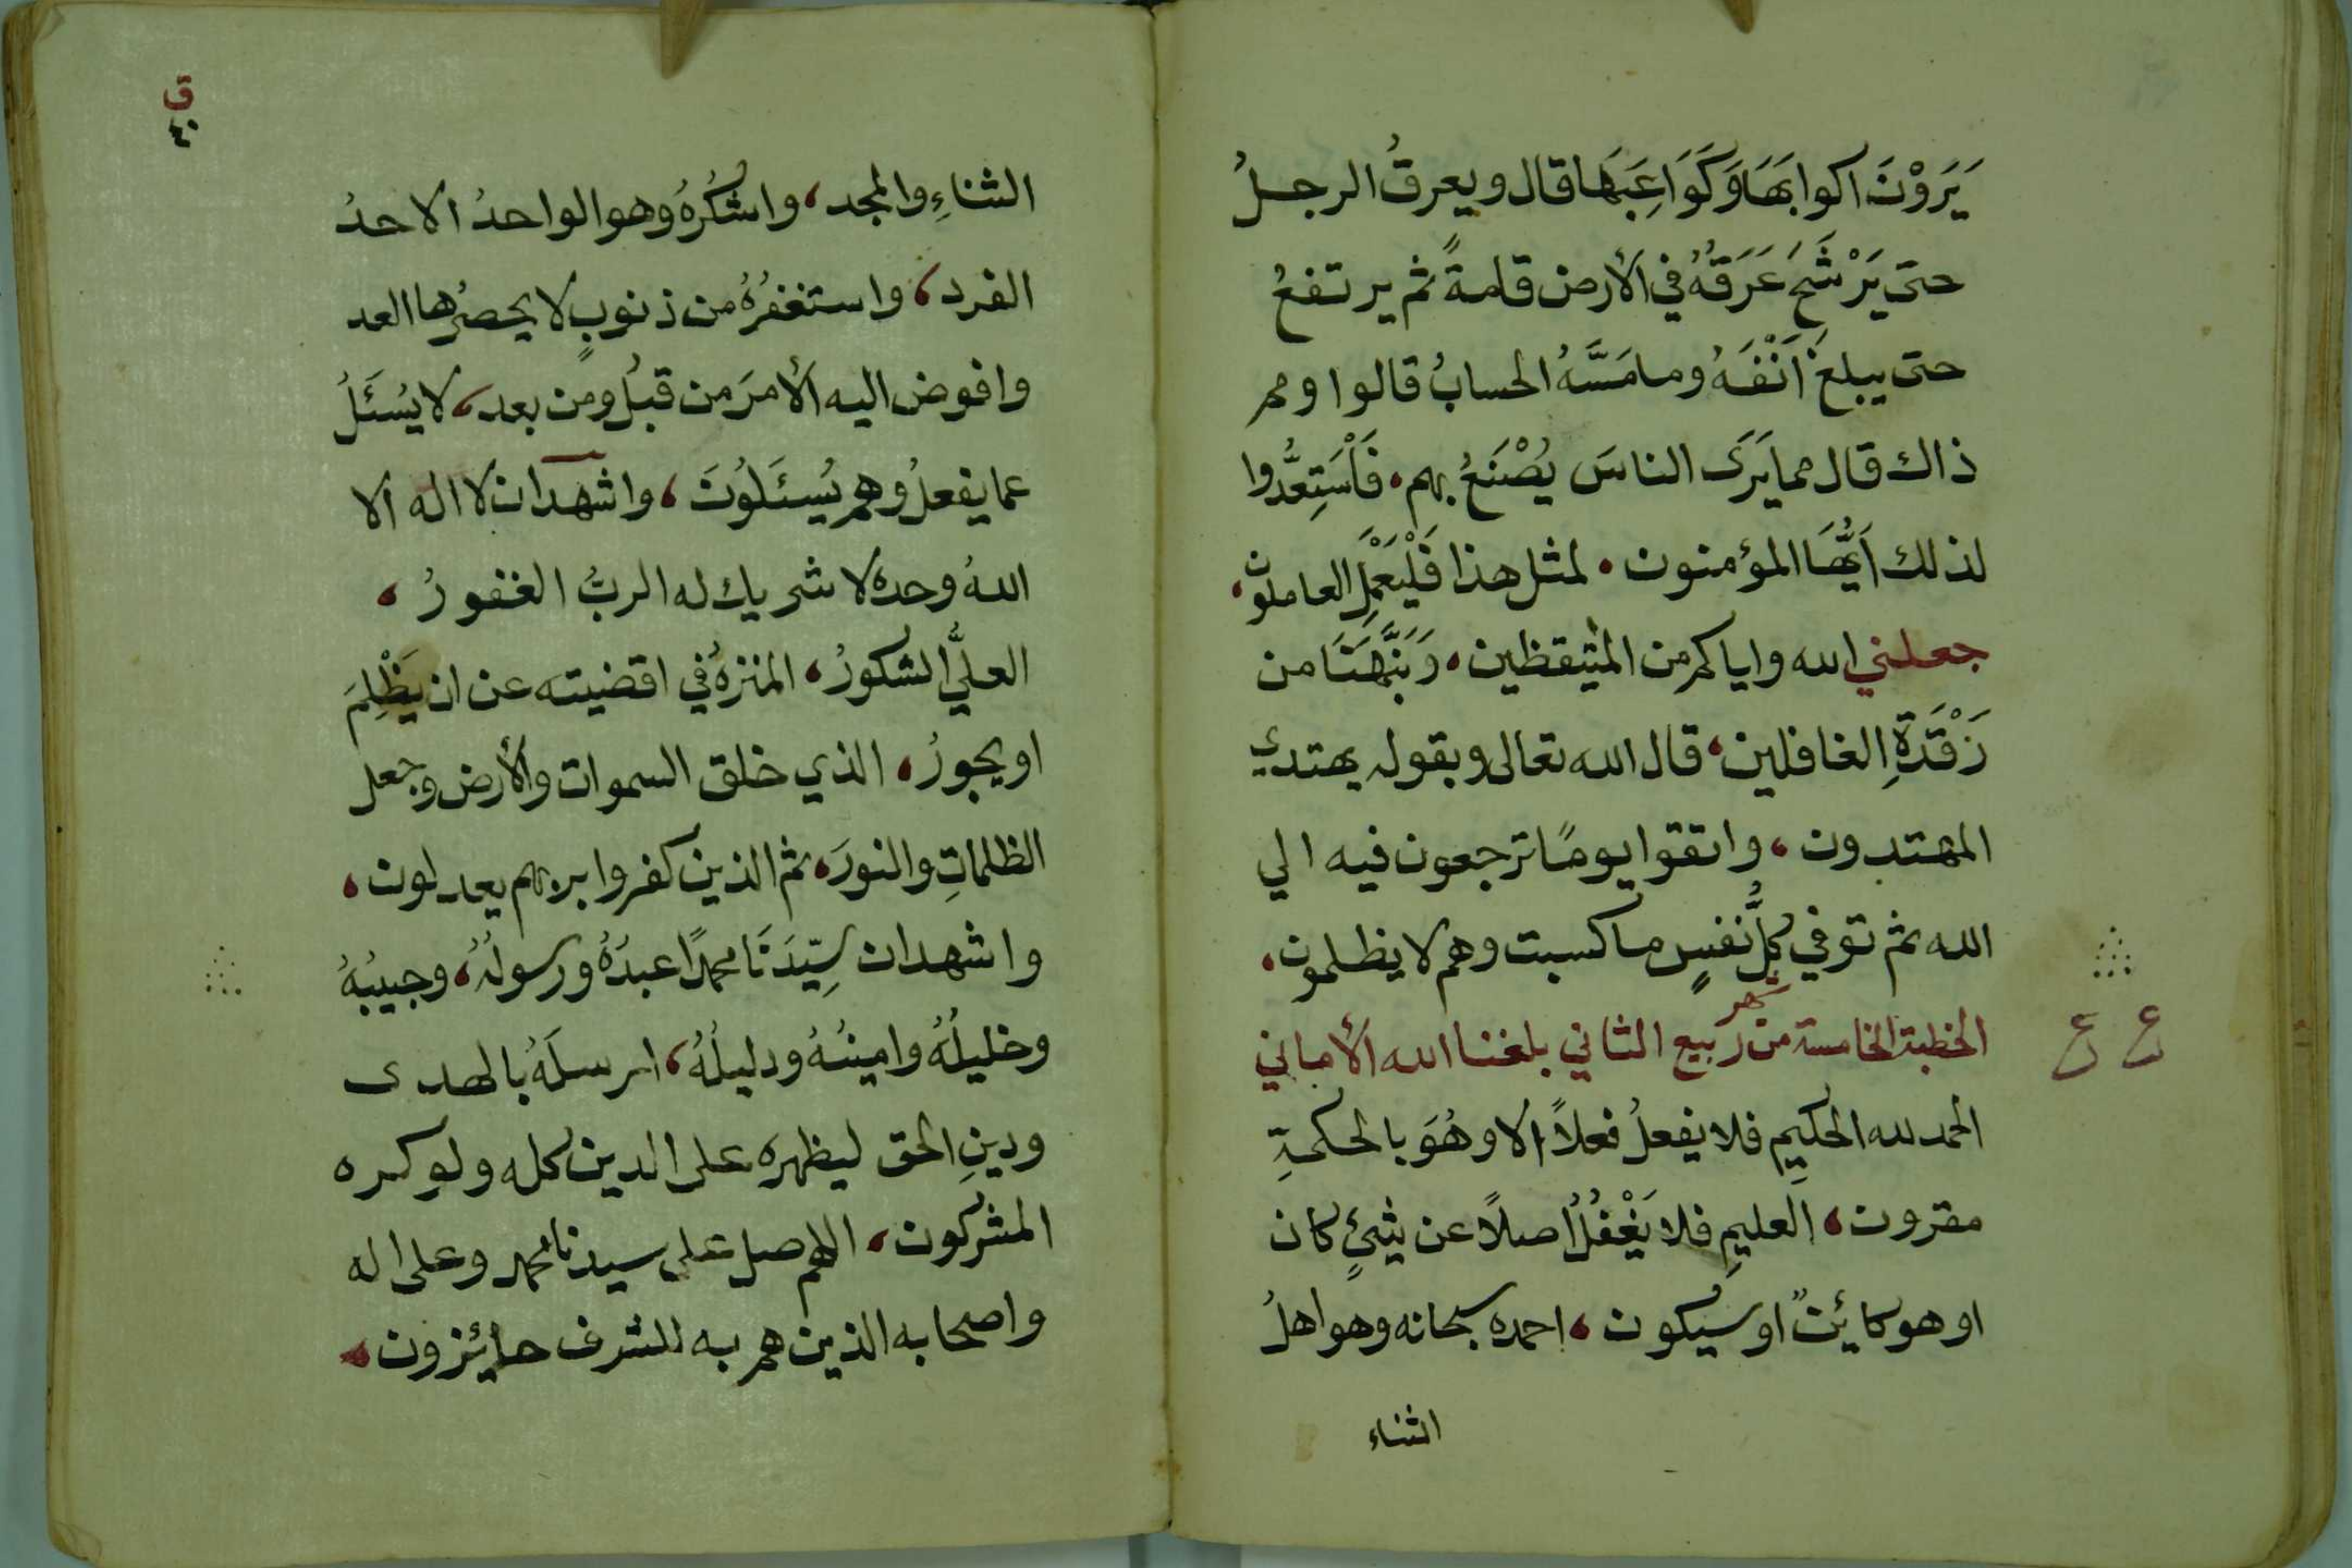 يَرَوْنَ اكوابَهَا وَكَوَاعِبَهَا قال ويعرقُ الرجلُ
حتى يَرْشَحَ عَرَقُهُ في الأرض قامةً ثم يرتفعُ
حتى يبلغَ اَنْفَهُ وما مَسَّهُ الحسابُ قالوا ومم
ذاك قال مما يَرَى الناسَ يُصْنَعُ بهم، فَاَسْتَعِدُّوا
لذلك اَيُّهَا المؤمنون، لمثل هذا فَلْيَعْمَلِ العاملون،
جعلني الله واياكم من المتيقظين، وَنَبَّهَنَا من
رَقْدَةِ الغافلين، قال الله تعالى وبقوله يهتدي
المهتدون، واتقوا يومًا ترجعون فيه الي
الله ثم توفي كلُّ نفسٍ ما كسبت وهم لا يظلمون،
ع ع
الخطبة الخامسة من شهر ربيع الثاني بلغنا الله الأماني
الحمد لله الحكيمِ فلا يفعلُ فعلاً الا وهُوَ بالحكمةِ
مقرون، العليمِ فلا يَغْفُلُ اصلاً عن شئٍ كان
او هو كائنٌ او سيكون، احمده سبحانه وهو اهلُ
الثناء
ق
٤٠
الثناءِ والمجد، واشكُرُهُ وهو الواحدُ الاحدُ
الفرد، واستغفرُهُ من ذنوبٍ لا يحصرُها العد
وافوض اليه الأمرَ من قبلُ ومن بعد، لا يُسْئَلُ
عما يفعلُ وهم يُسْئَلُونَ، واشهد ان لا اله الا
اللهُ وحده لا شريك له الربُّ الغفورُ،
العليُّ الشكورُ، المنزهُ في اقضيته عن ان يَظْلِمَ
او يجورُ، الذي خلق السموات والأرض وجعل
الظلماتِ والنورَ، ثم الذين كفروا بربهم يعدلون،
واشهد ان سيِّدَنَا محمدًا عبدُهُ ورسولُهُ، وحبيبُهُ
وخليلُهُ وامينُهُ ودليلُهُ، ارسلَهُ بالهدى
ودينِ الحق ليظهره على الدين كله ولو كره
المشركون، اللهم صل على سيدنا محمد وعلى اله
واصحابه الذين هم به للشرف حائزون،